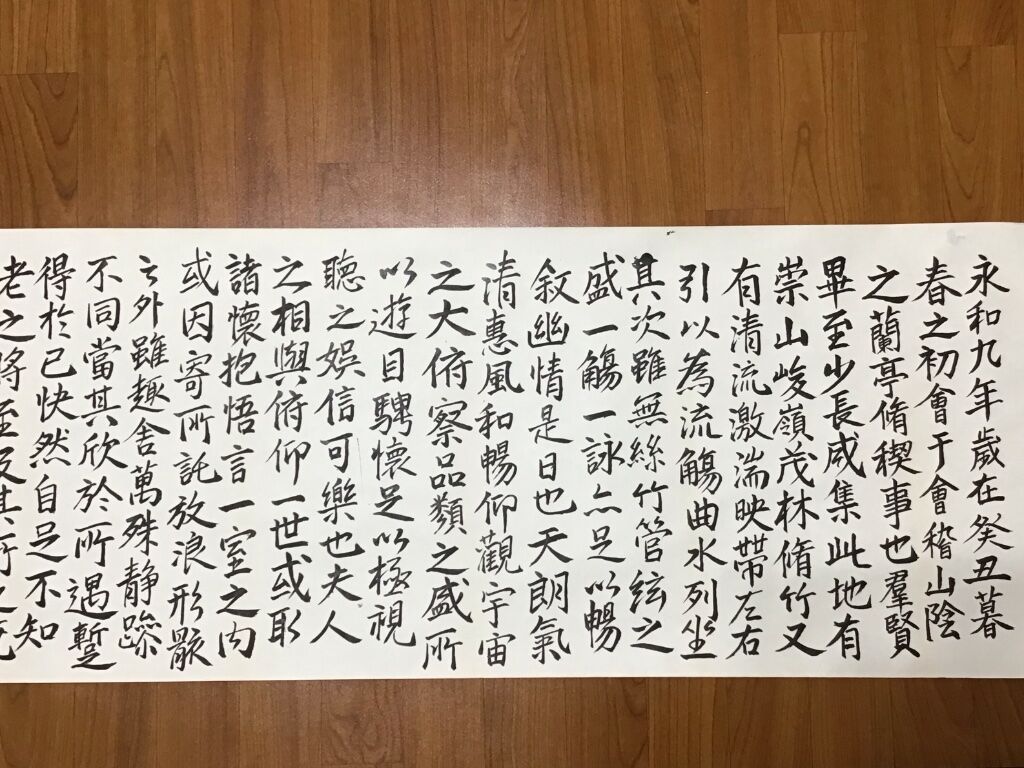 永和九年歲在癸丑暮
春之初會于會稽山陰
之蘭亭脩稧事也羣賢
畢至少長咸集此地有
崇山峻嶺茂林脩竹又
有清流激湍映帶左右
引以為流觴曲水列坐
其次雖無絲竹管絃之
盛一觴一詠亦足以暢
敘幽情是日也天朗氣
清惠風和暢仰觀宇宙
之大俯察品類之盛所
以遊目騁懷足以極視
聽之娛信可樂也夫人
之相與俯仰一世或取
諸懷抱悟言一室之內
或因寄所託放浪形骸
之外雖趣舍萬殊靜躁
不同當其欣於所遇蹔
得於己快然自足不知
老之將至及其所之既